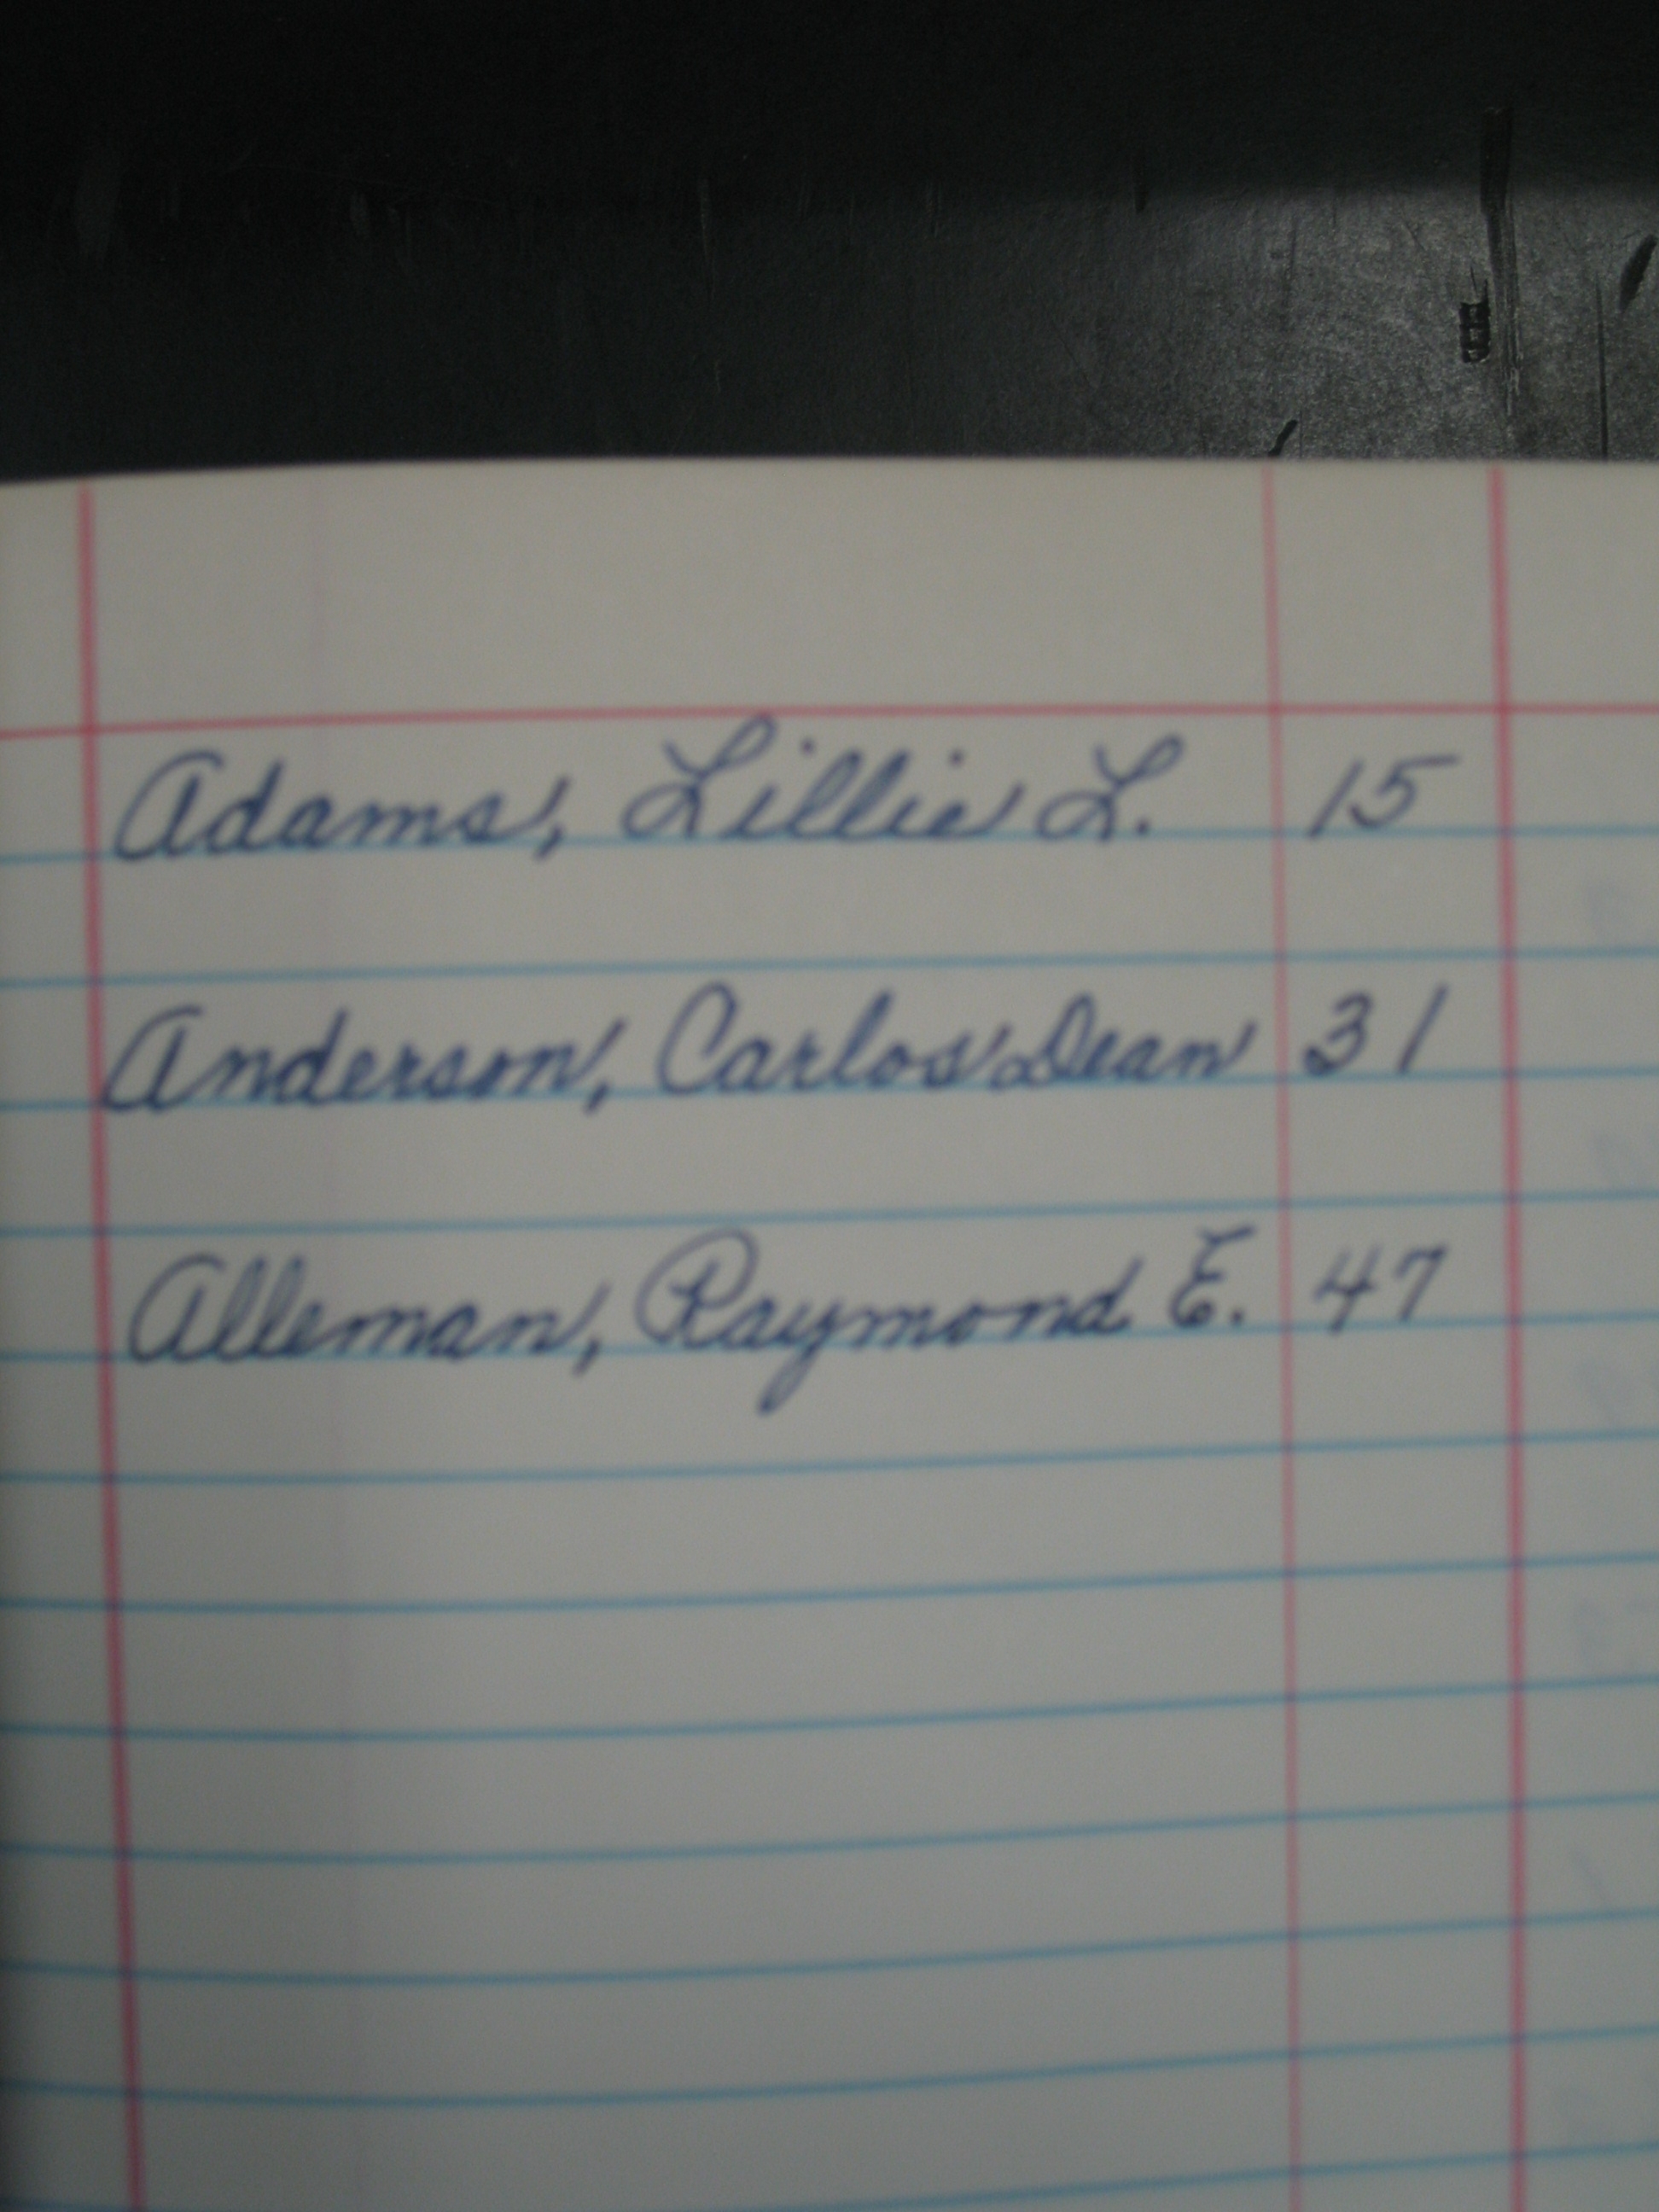 Adams, Lillie L. 15
Anderson, Carlos Dean 31
Alleman, Raymond E. 47